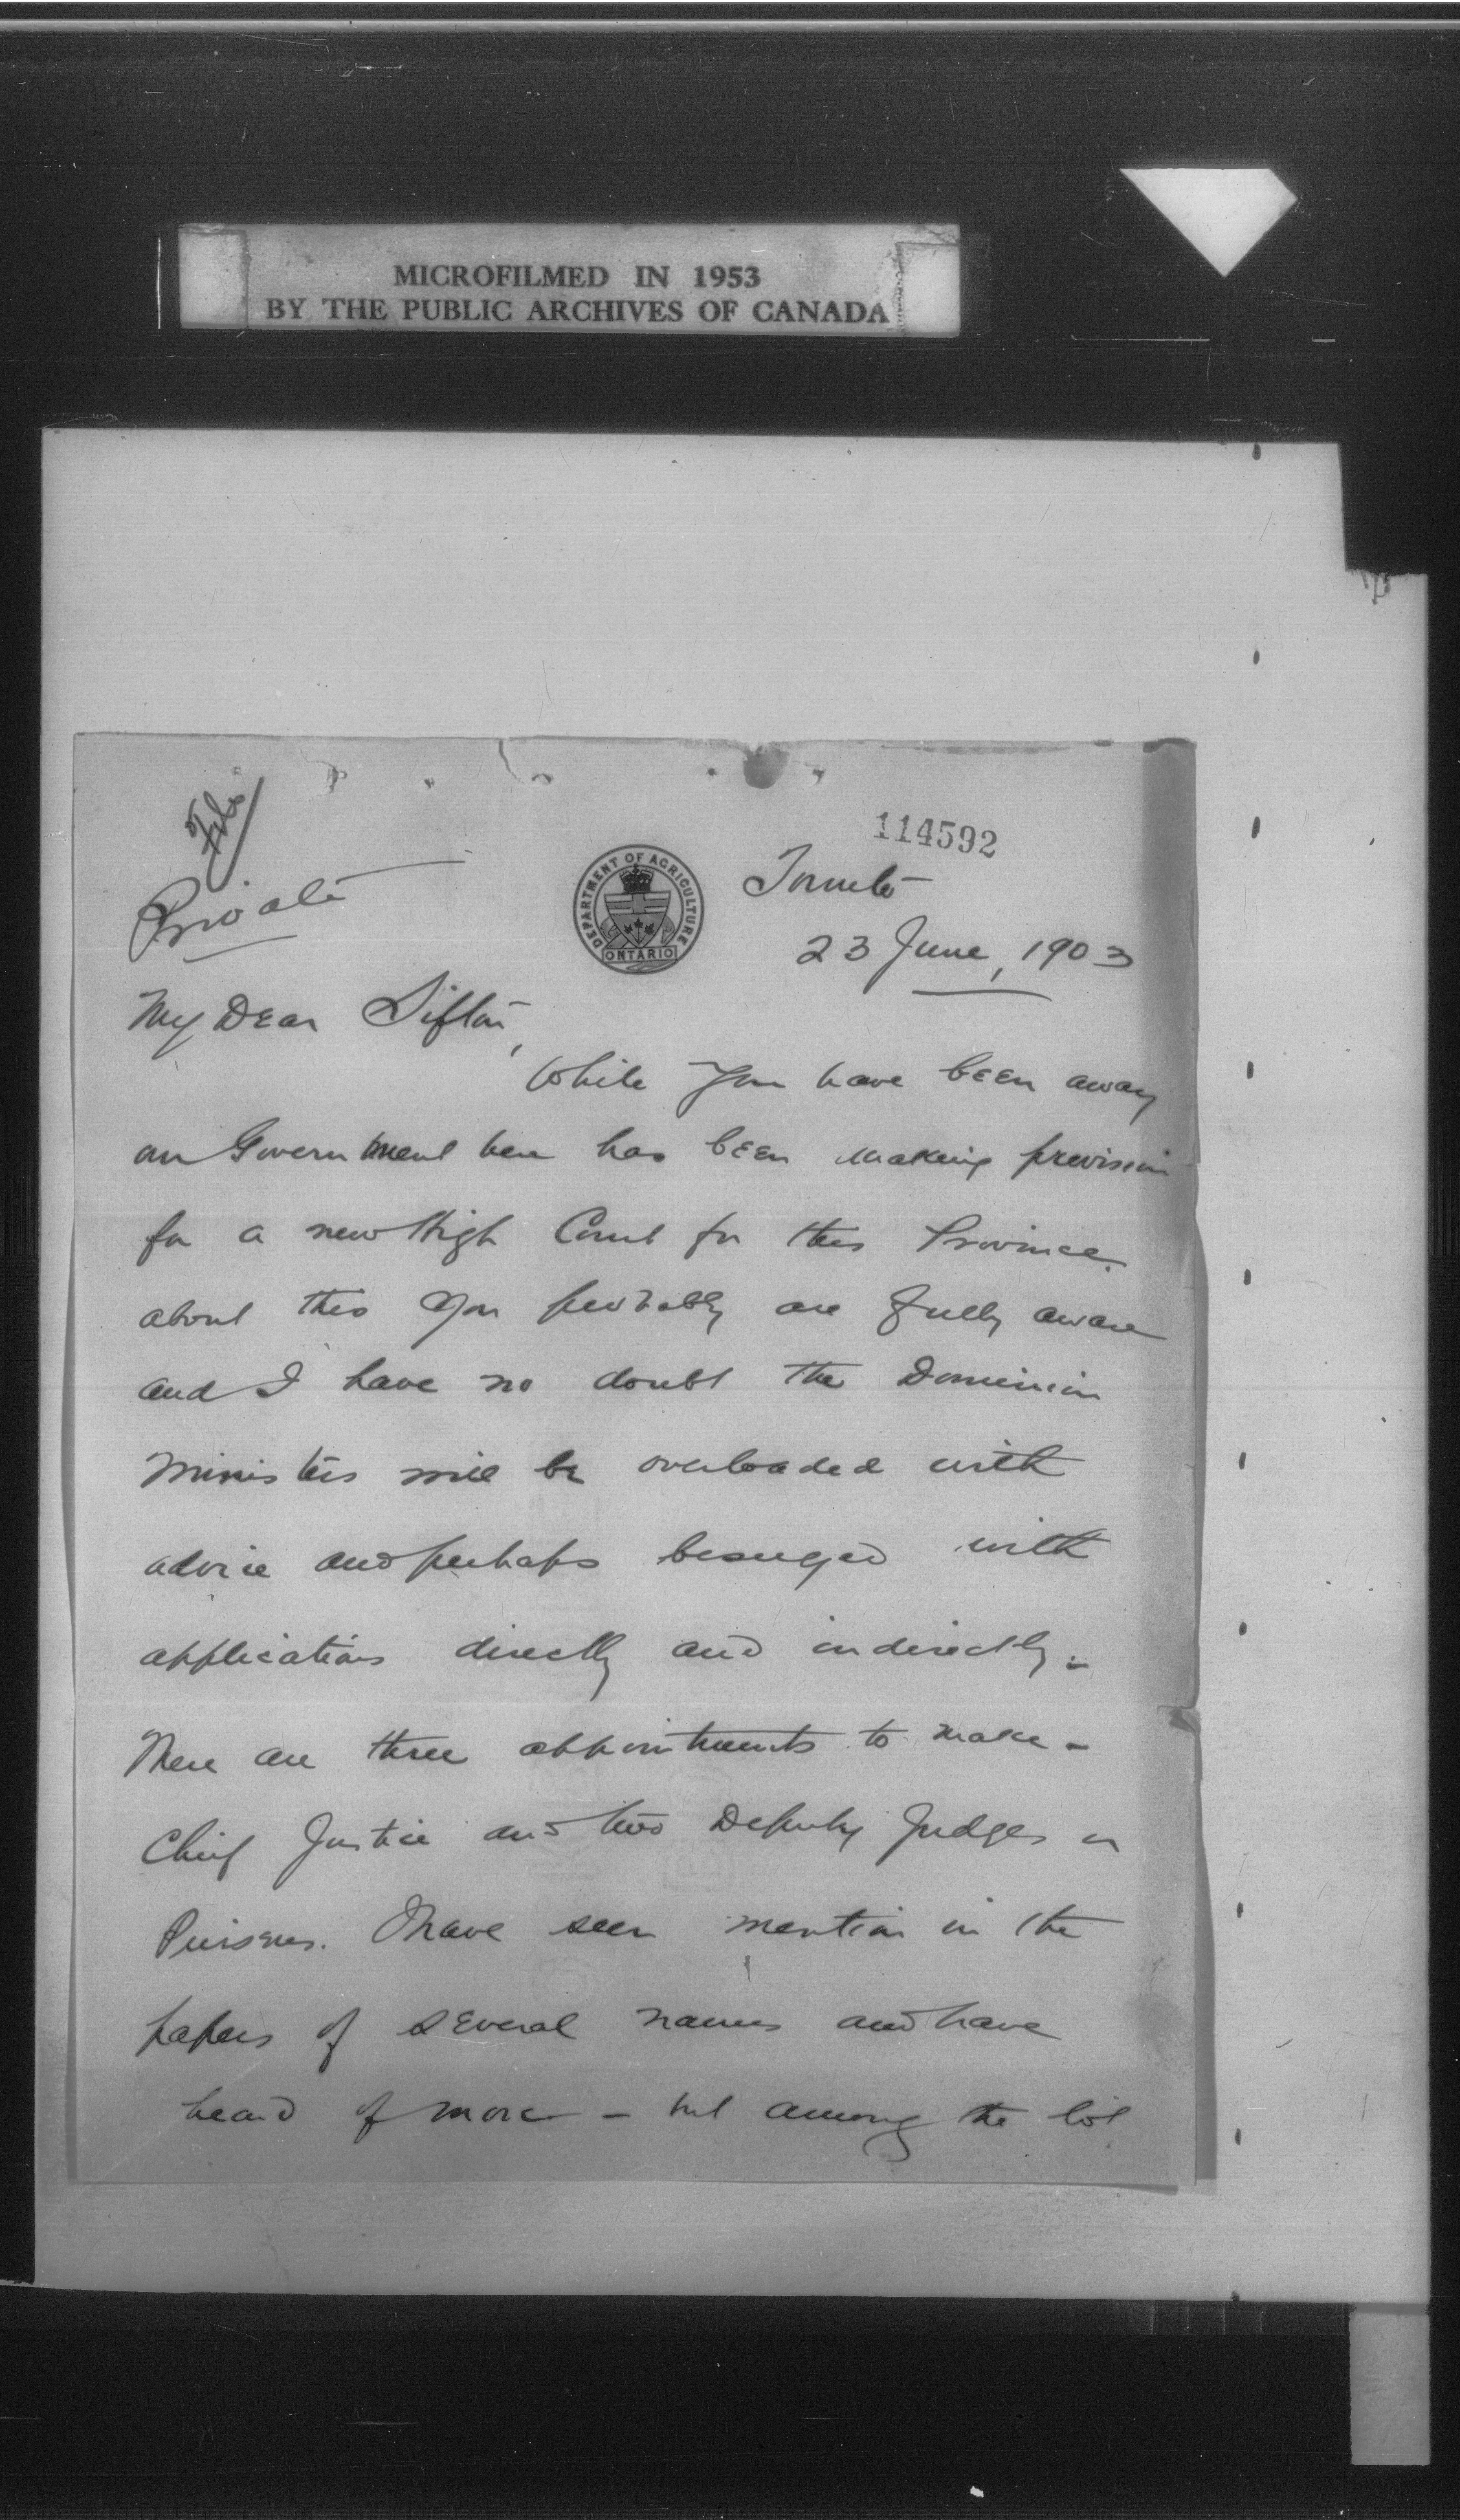 MICROFILMED IN 1953
BY THE PUBLIC ARCHIVES OF CANADA
File
114592
Private
DEPARTMENT OF AGRICULTURE
ONTARIO
Toronto
23 June, 1903
My Dear Sifton,
While you have been away
our Government here has been making provision
for a new High Court for this Province.
about this you probably are fully aware
and I have no doubt the Dominion
Ministers will be overloaded with
advice and perhaps besieged with
applications directly and indirectly.
There are three appointments to make -
Chief Justice and two Deputy Judges or
Puisnes. I have seen mention in the
papers of several names and have
heard of more - but among the lot